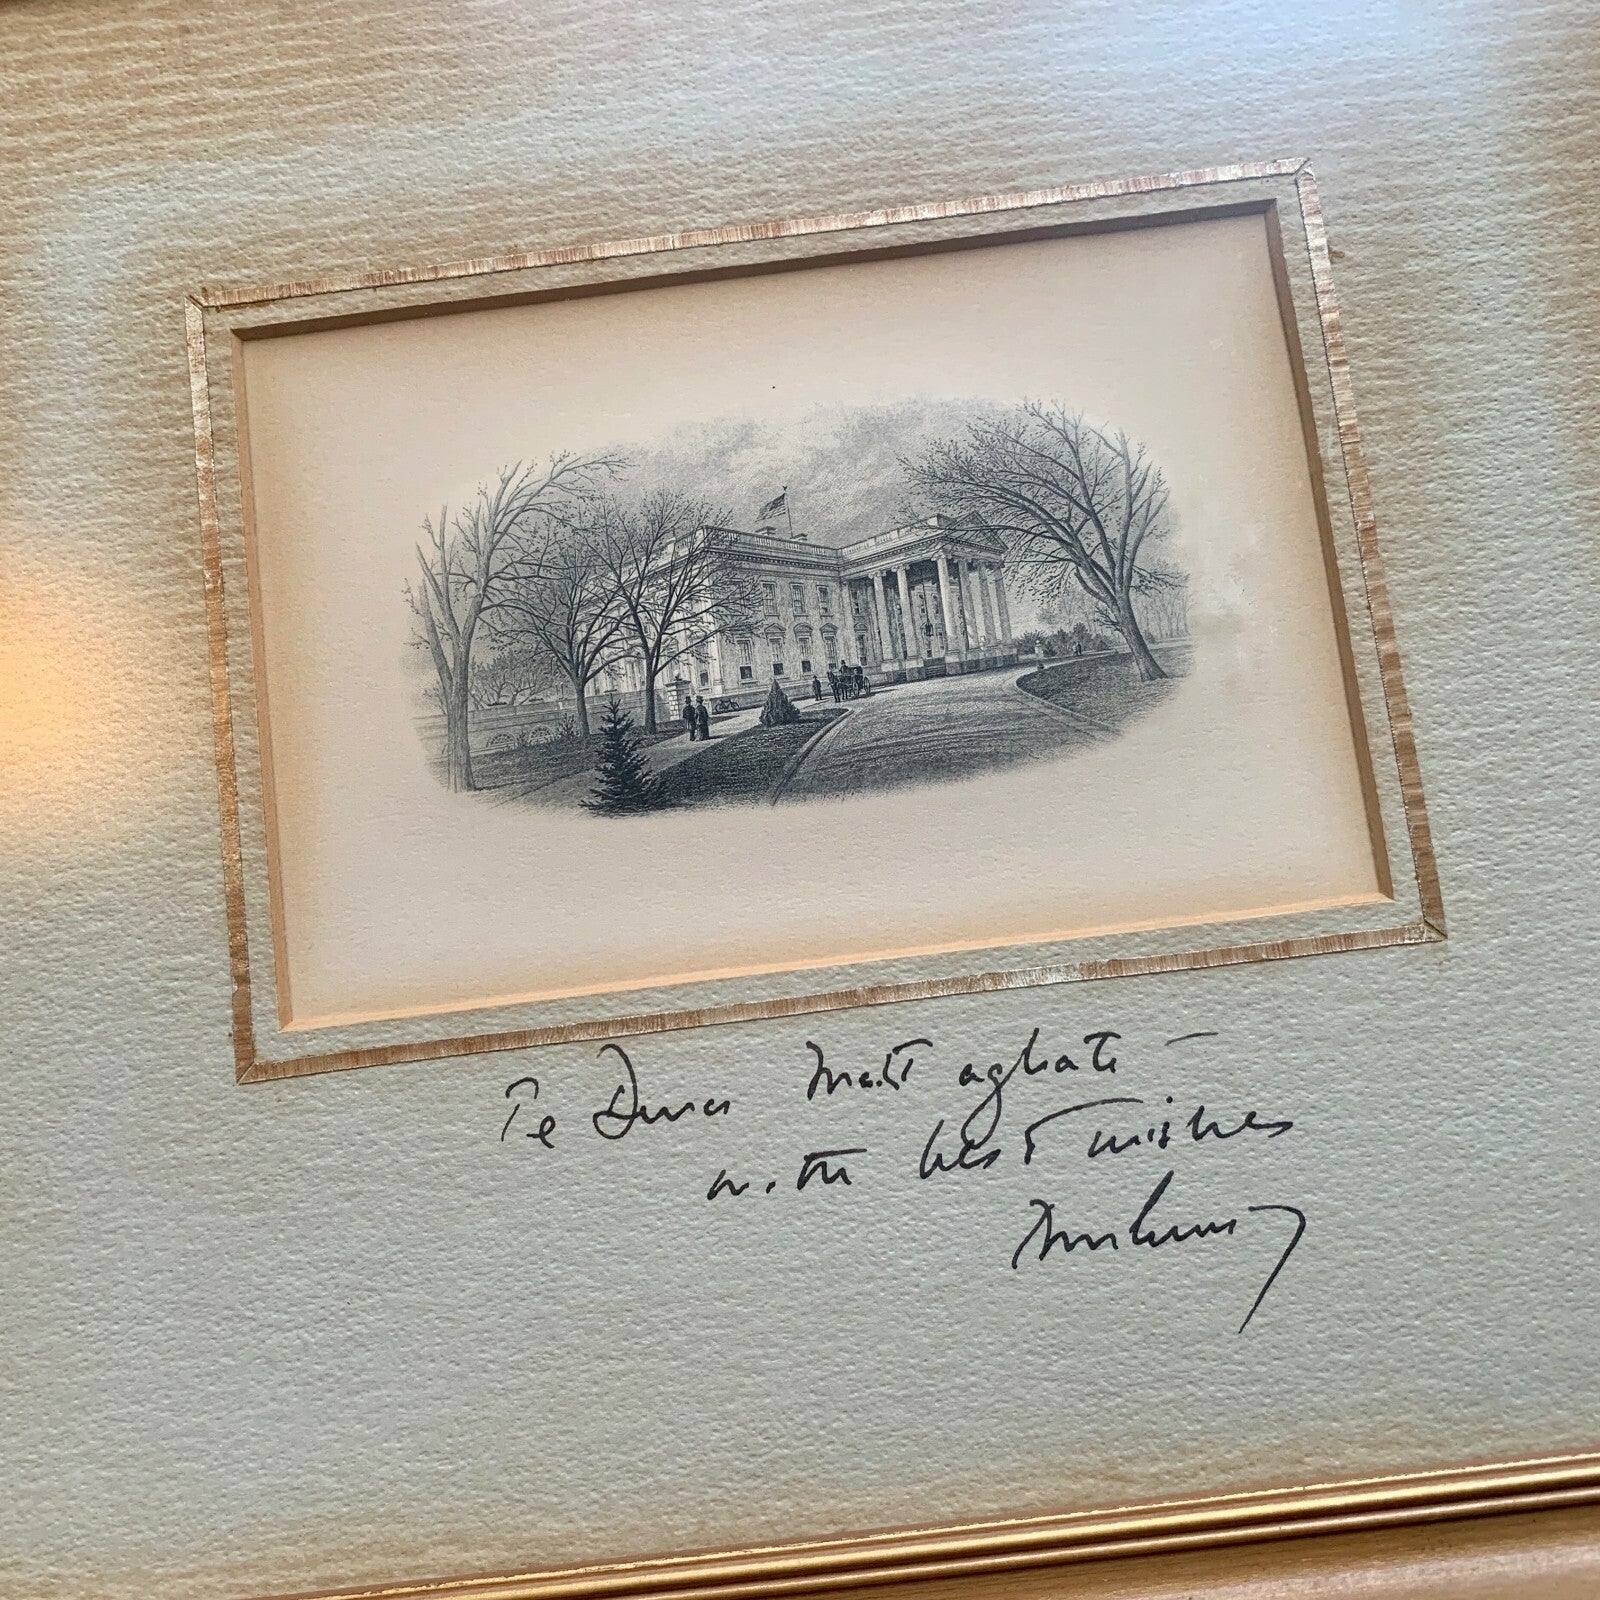 To Dina Mastagliati —
with best wishes